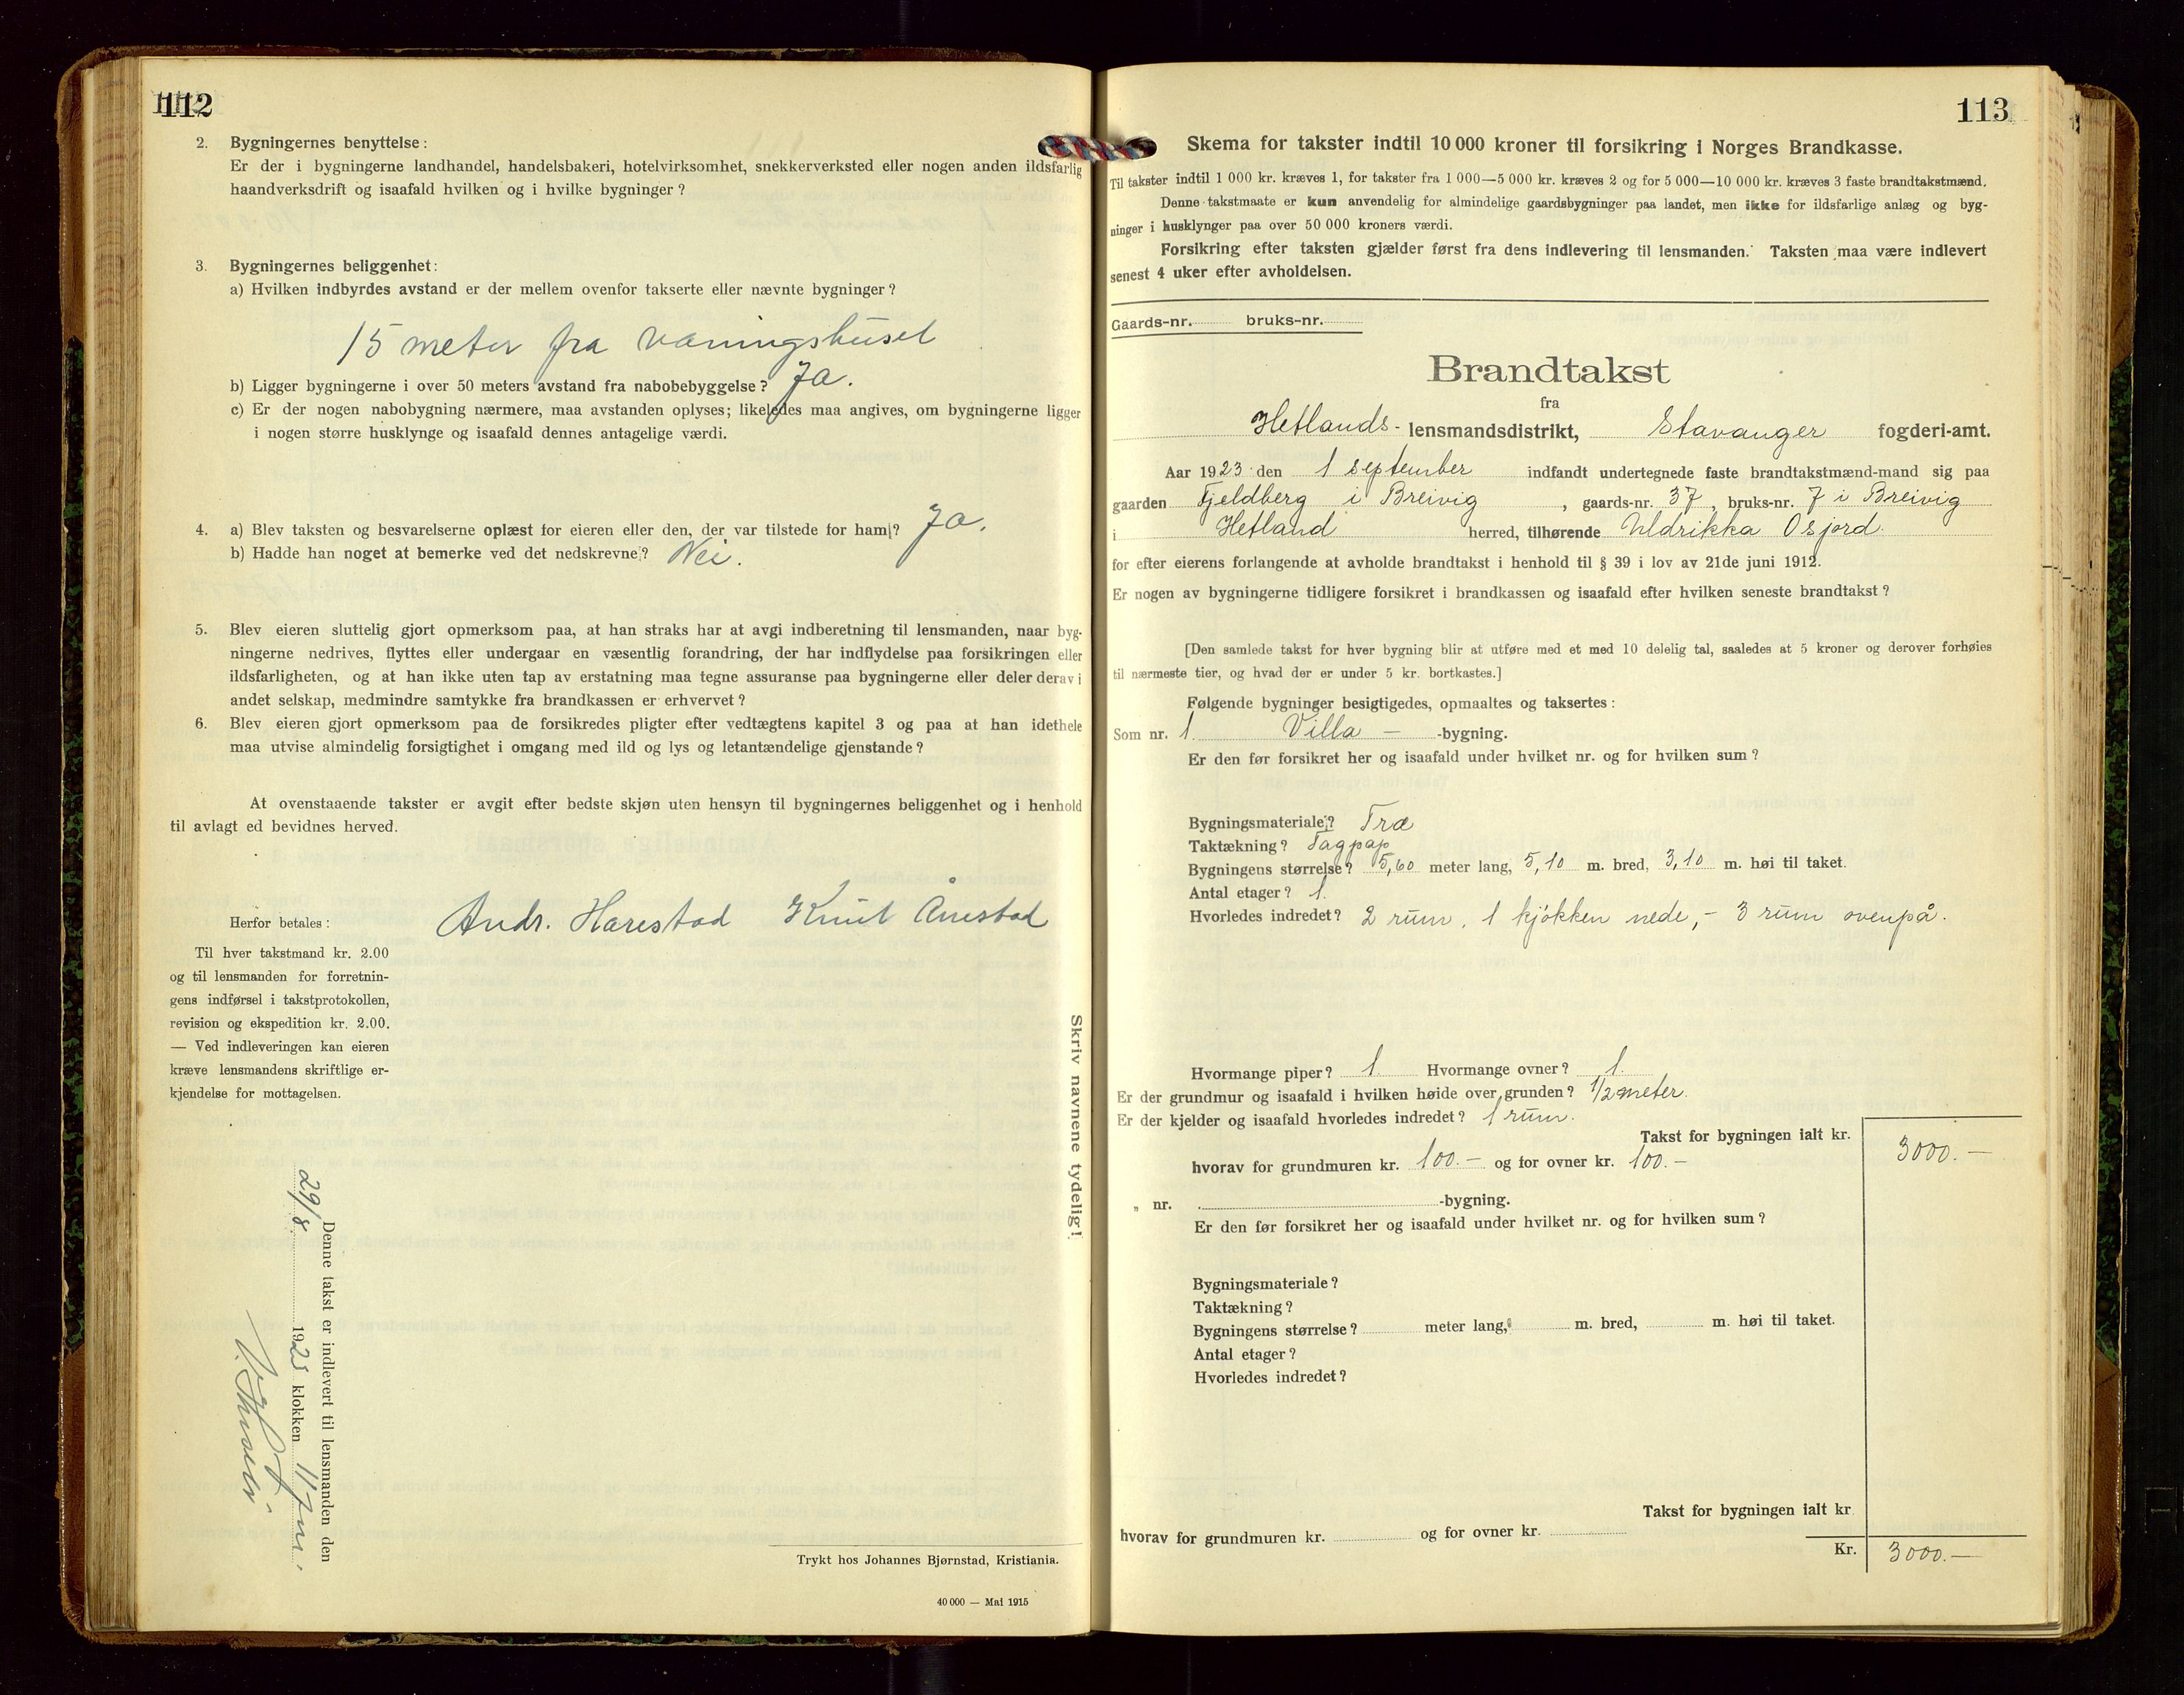 112
2. Bygningernes benyttelse:
Er der i bygningerne landhandel, handelsbakeri, hotelvirksomhet, snekkerverksted eller nogen anden ildsfarlig
haandverksdrift og isaafald hvilken og i hvilke bygninger?
3. Bygningernes beliggenhet:
a) Hvilken indbyrdes avstand er der mellem ovenfor takserte eller nævnte bygninger?
15 meter fra vaningshuset
b) Ligger bygningerne i over 50 meters avstand fra nabobebyggelse? Ja.
c) Er der nogen nabobygning nærmere, maa avstanden oplyses; likeledes maa angives, om bygningerne ligger
i nogen større husklynge og isaafald dennes antagelige værdi.
4. a) Blev taksten og besvarelserne oplæst for eieren eller den, der var tilstede for ham? Ja.
b) Hadde han noget at bemerke ved det nedskrevne? Nei.
5. Blev eieren sluttelig gjort opmerksom paa, at han straks har at avgi indberetning til lensmanden, naar byg-
ningerne nedrives, flyttes eller undergaar en væsentlig forandring, der har indflydelse paa forsikringen eller
ildsfarligheten, og at han ikke uten tap av erstatning maa tegne assuranse paa bygningerne eller deler derav i
andet selskap, medmindre samtykke fra brandkassen er erhvervet?
6. Blev eieren gjort opmerksom paa de forsikredes pligter efter vedtægtens kapitel 3 og paa at han idethele
maa utvise almindelig forsigtighet i omgang med ild og lys og letantændelige gjenstande?
At ovenstaaende takster er avgit efter bedste skjøn uten hensyn til bygningernes beliggenhet og i henhold
til avlagt ed bevidnes herved.
Andr. Harestad Knut Åmestad
Herfor betales:
Til hver takstmand kr. 2.00
og til lensmanden for forretnin-
gens indførsel i takstprotokollen,
revision og ekspedition kr. 2.00.
— Ved indleveringen kan eieren
kræve lensmandens skriftlige er-
kjendelse for mottagelsen.
Skriv navnene tydelig!
Denne takst er indlevert til lensmanden den
29/8 1923 klokken 11
Trykt hos Johannes Bjørnstad, Kristiania.
40 000 — Mai 1915
113
Skema for takster indtil 10 000 kroner til forsikring i Norges Brandkasse.
Til takster indtil 1 000 kr. kræves 1, for takster fra 1 000—5 000 kr. kræves 2 og for 5 000—10 000 kr. kræves 3 faste brandtakstmænd.
Denne takstmaate er kun anvendelig for almindelige gaardsbygninger paa landet, men ikke for ildsfarlige anlæg og byg-
ninger i husklynger paa over 50 000 kroners værdi.
Forsikring efter taksten gjælder først fra dens indlevering til lensmanden. Taksten maa være indlevert
senest 4 uker efter avholdelsen.
Gaards-nr. bruks-nr.
Brandtakst
fra
Hetlands- lensmandsdistrikt, Stavanger fogderi-amt.
Aar 1923 den 1 september indfandt undertegnede faste brandtakstmænd-mand sig paa
gaarden Fjeldberg i Breivig, gaards-nr. 37, bruks-nr. 7 i Breivig
i Hetland herred, tilhørende Uldrikka Osjord.
for efter eierens forlangende at avholde brandtakst i henhold til § 39 i lov av 21de juni 1912.
Er nogen av bygningerne tidligere forsikret i brandkassen og isaafald efter hvilken seneste brandtakst?
[Den samlede takst for hver bygning blir at utføre med et med 10 delelig tal, saaledes at 5 kroner og derover forhøies
til nærmeste tier, og hvad der er under 5 kr. bortkastes.]
Følgende bygninger besigtigedes, opmaaltes og taksertes:
Som nr. 1. Villa — -bygning.
Er den før forsikret her og isaafald under hvilket nr. og for hvilken sum?
Bygningsmateriale? Træ
Taktækning? Tagpap
Bygningens størrelse? 5,60 meter lang, 5,10 m. bred, 3,10 m. høi til taket.
Antal etager? 1.
Hvorledes indredet? 2 rum, 1 kjøkken nede, - 3 rum ovenpå.
Hvormange piper? 1. Hvormange ovner? 1.
Er der grundmur og isaafald i hvilken høide over grunden? 1/2 meter.
Er der kjelder og isaafald hvorledes indredet? 1 rum.
Takst for bygningen ialt kr. 3000.—
hvorav for grundmuren kr. 100.— og for ovner kr. 100.—
„ nr. -bygning.
Er den før forsikret her og isaafald under hvilket nr. og for hvilken sum?
Bygningsmateriale?
Taktækning?
Bygningens størrelse? meter lang, m. bred, m. høi til taket.
Antal etager?
Hvorledes indredet?
Takst for bygningen ialt kr
hvorav for grundmuren kr. og for ovner kr.
Kr. 3000.—